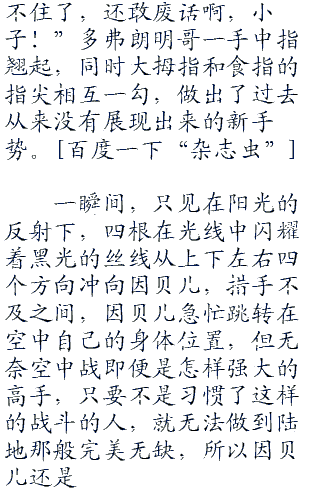 不住了，还敢废话啊，小
子！”多弗朗明哥一手中指
翘起，同时大拇指和食指的
指尖相互一勾，做出了过去
从来没有展现出来的新手
势。[百度一下“杂志虫”]
一瞬间，只见在阳光的
反射下，四根在光线中闪耀
着黑光的丝线从上下左右四
个方向冲向因贝儿，措手不
及之间，因贝儿急忙跳转在
空中自己的身体位置，但无
奈空中战即便是怎样强大的
高手，只要不是习惯了这样
的战斗的人，就无法做到陆
地那般完美无缺，所以因贝
儿还是